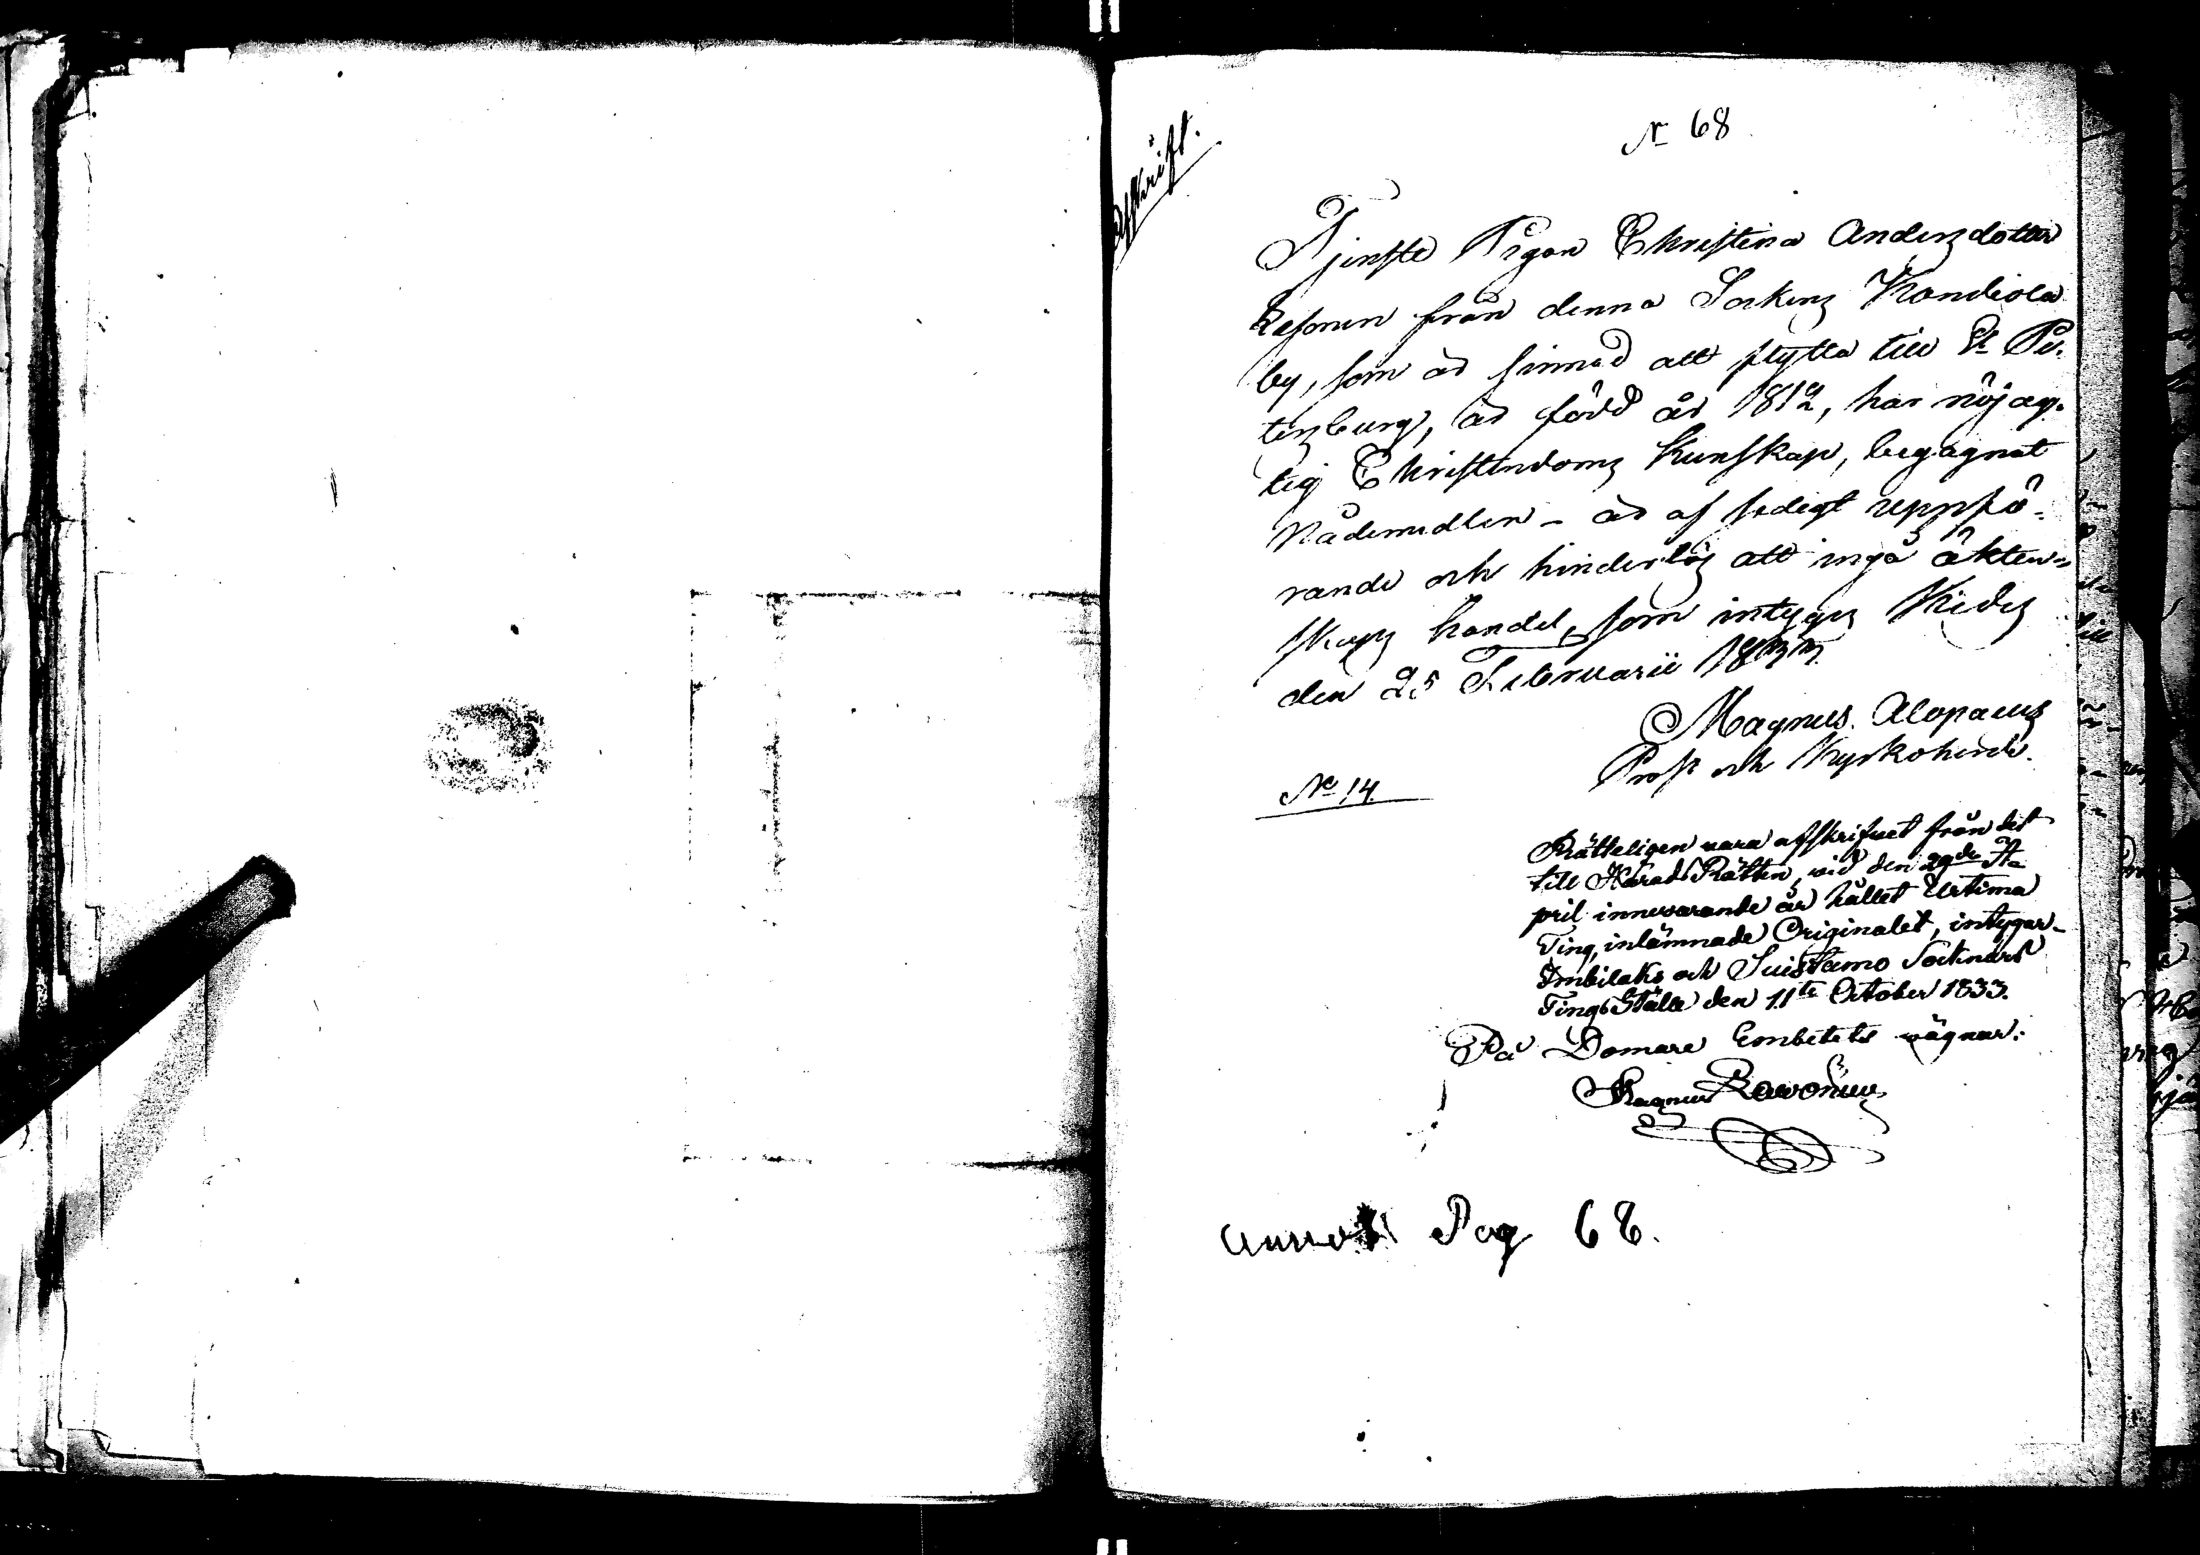 Afskrift.
N 68
Tjenste Pigan Christina Andersdotter
från denna Sockens
by, som är sinnad att flytta till St Pe-
tersburg, är född år 1812, har nöjag-
tig Christendoms Kunskap, begagnat
Nådemedlen – är af sedigt uppfö-
rande och hinderlös att ingå äkten-
skaps handel, som intygas Kides
den 25 Februarii 1833.
Magnus Alopaeus
Prost och Kyrkoherde.
No 14
Rätteligen vara afskrifvet från det
till HäradsRätten, vid den 29de A-
pril innevarande år hållet Urtima
Ting, inlämnade Originalet, intygar-
Imbilaks och Suistamo Socknars
TingsStälle den 11te October 1833.
På Domare Embetets vägnar:
Magnus
Pag 68.